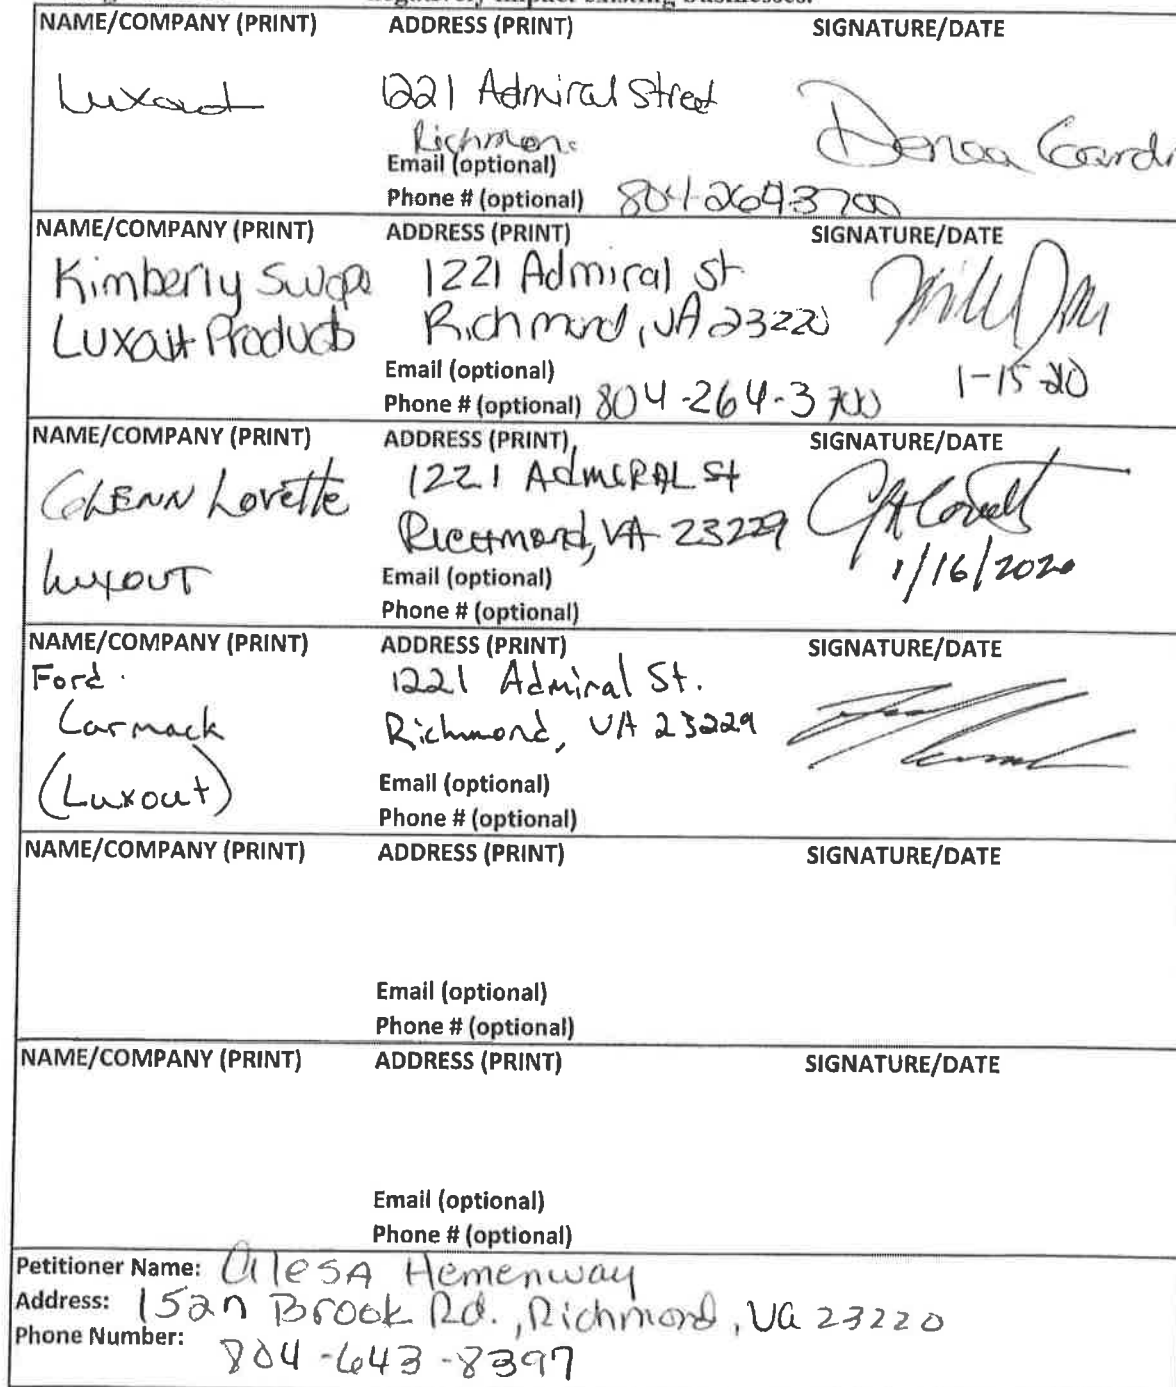 negatively impact existing businesses.
NAME/COMPANY (PRINT) ADDRESS (PRINT) SIGNATURE/DATE
Luxout 1221 Admiral Street
Richmon
Email (optional)
Phone # (optional) 804-264-3700
NAME/COMPANY (PRINT) ADDRESS (PRINT) SIGNATURE/DATE
Kimberly Swope 1221 Admiral St
Luxout Products Richmond, VA 23220
Email (optional) 1-15-20
Phone # (optional) 804-264-3700
NAME/COMPANY (PRINT) ADDRESS (PRINT) SIGNATURE/DATE
GLENN Lovette 1221 AdmIRAL St
Richmond, VA 23229
Luxout 1/16/2020
Email (optional)
Phone # (optional)
NAME/COMPANY (PRINT) ADDRESS (PRINT) SIGNATURE/DATE
Ford 1221 Admiral St.
Carmack Richmond, VA 23229
(Luxout) Email (optional)
Phone # (optional)
NAME/COMPANY (PRINT) ADDRESS (PRINT) SIGNATURE/DATE
Email (optional)
Phone # (optional)
NAME/COMPANY (PRINT) ADDRESS (PRINT) SIGNATURE/DATE
Email (optional)
Phone # (optional)
Petitioner Name: AlesA Hemenway
Address: Brook Rd., Richmond, Va 23220
Phone Number: 804-643-8397